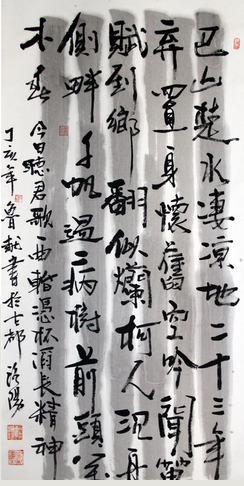 巴山楚水凄涼地二十三年
弃置身懷舊空吟聞笛
賦到鄉翻似爛柯人沉舟
側畔千帆過病樹前頭萬
木春今日聽君歌一曲暫憑杯酒長精神
丁亥年魯書於古都洛陽